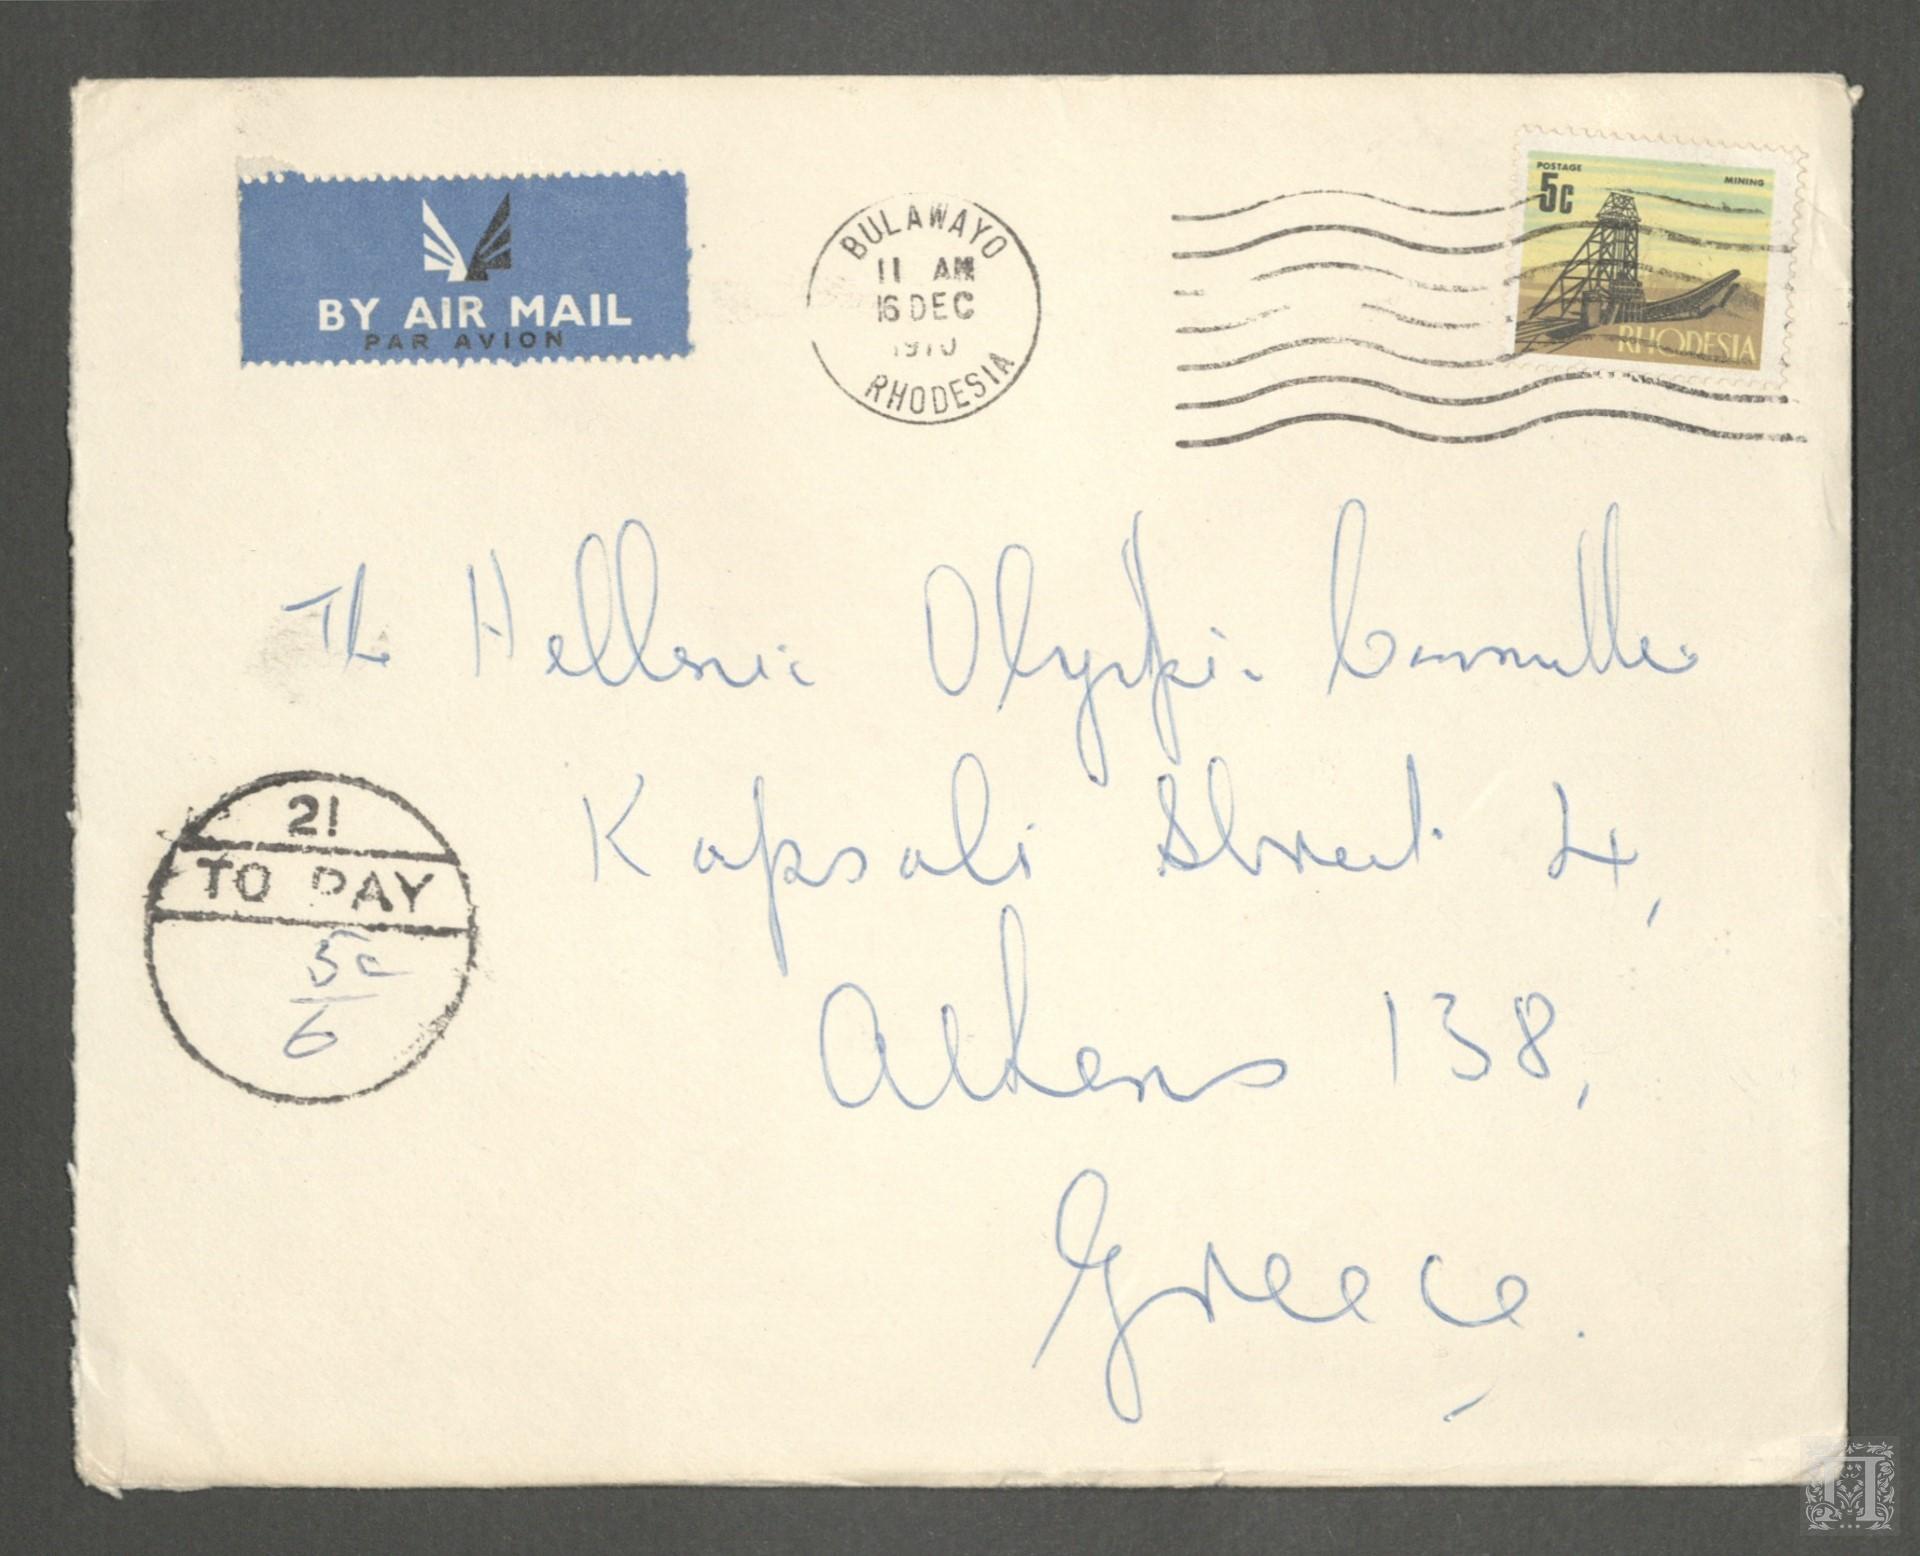 BY AIR MAIL
PAR AVION
BULAWAYO
11 AM
16 DEC
1970
RHODESIA
POSTAGE
5c
MINING
RHODESIA
The Hellenic Olympic Committee
Kapsali Street 4,
Athens 138,
Greece.
21
TO PAY
5c
6